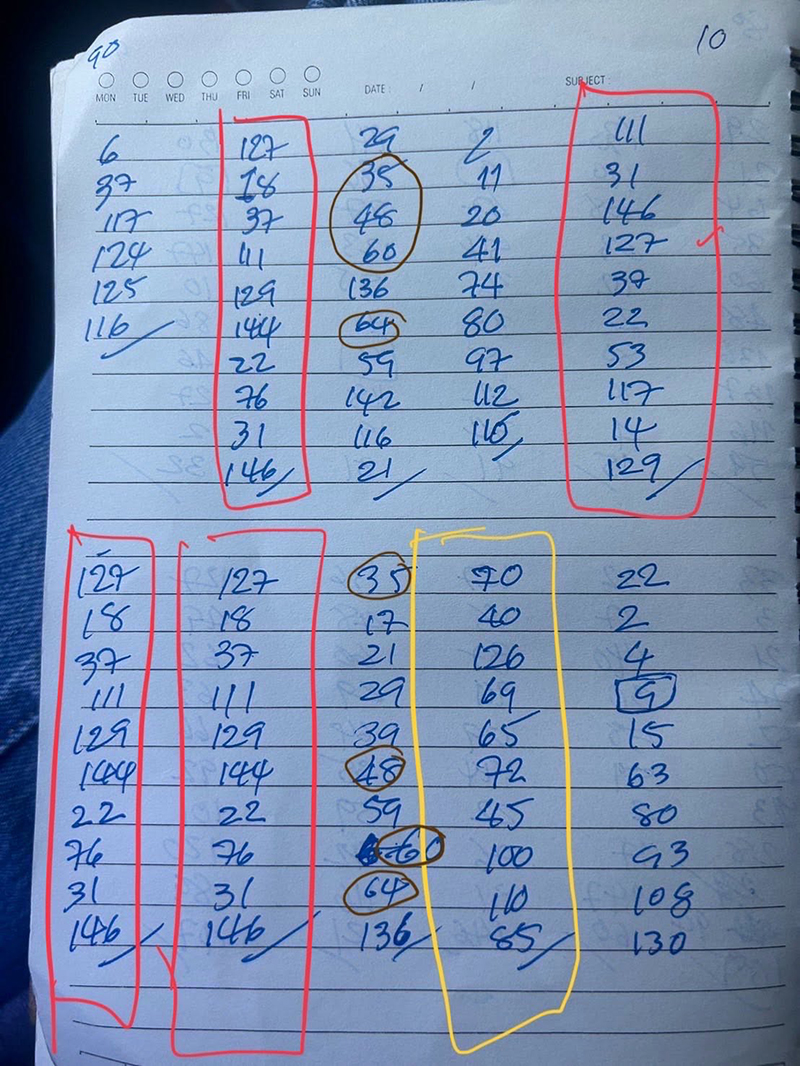 90 10
MON TUE WED THU FRI SAT SUN DATE : / / SUBJECT :
6 127 29 2 111
37 18 35 11 31
117 37 48 20 146
124 111 60 41 127
125 129 136 74 37
116 144 64 80 22
22 59 97 53
76 142 112 117
31 116 115 14
146 21 129
127 127 35 70 22
18 18 17 40 2
37 37 21 126 4
111 111 29 69 9
129 129 39 65 15
144 144 48 72 63
22 22 59 45 80
76 76 60 100 93
31 31 64 110 108
146 146 136 85 130